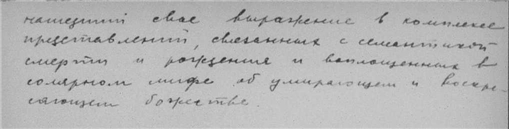 нашедший свое выражение в комплексе
представлений, связанных с семантикой
смерти и рождения и воплощенных в
солярном мифе об умирающем и воскре-
сающем божестве.